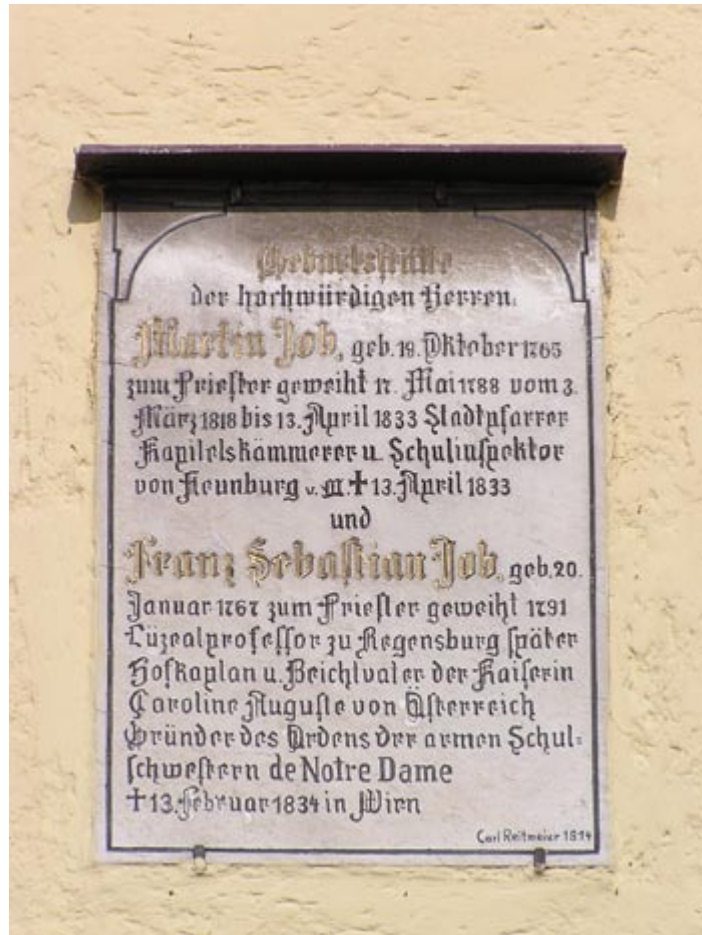 Geburtsstätte
der hochwürdigen Herren:
Martin Job, geb. 19. Oktober 1765
zum Priester geweiht 17. Mai 1788 vom 3.
März 1818 bis 13. April 1833 Stadtpfarrer
Kapitelskämmerer u. Schulinspektor
von Neunburg v. W. ✝ 13. April 1833
und
Franz Sebastian Job, geb. 20.
Januar 1767 zum Priester geweiht 1791
Lüzealprofessor zu Regensburg später
Hofkaplan u. Beichtvater der Kaiserin
Caroline Auguste von Österreich
Gründer des Ordens der armen Schul=
schwestern de Notre Dame
✝ 13. Februar 1834 in Wien
Carl Reitmeier 1914